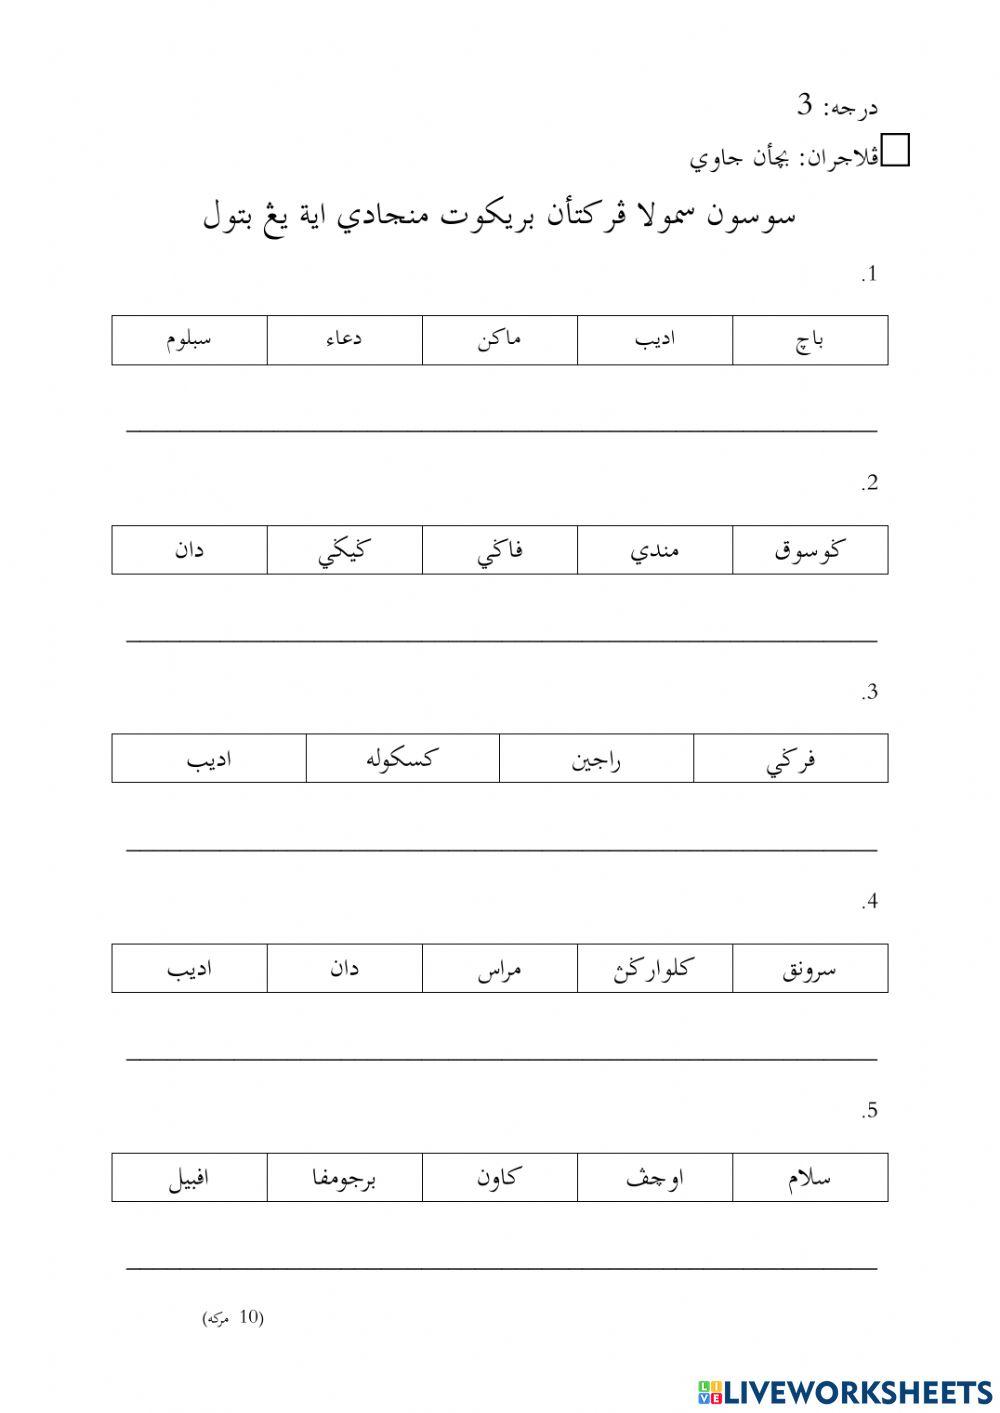 درجه: 3
ڤلاجران: بچأن جاوي
سوسون سمولا ڤركتأن بريكوت منجادي اية يڠ بتول
1.
باچ اديب ماكن دعاء سبلوم
2.
ݢوسوق مندي فاݢي ݢيݢي دان
3.
فرݢي راجين كسكوله اديب
4.
سرونق كلوارݢڽ مراس دان اديب
5.
سلام اوچڤ كاون برجومفا افبيل
(10 مركه)
LIVEWORKSHEETS